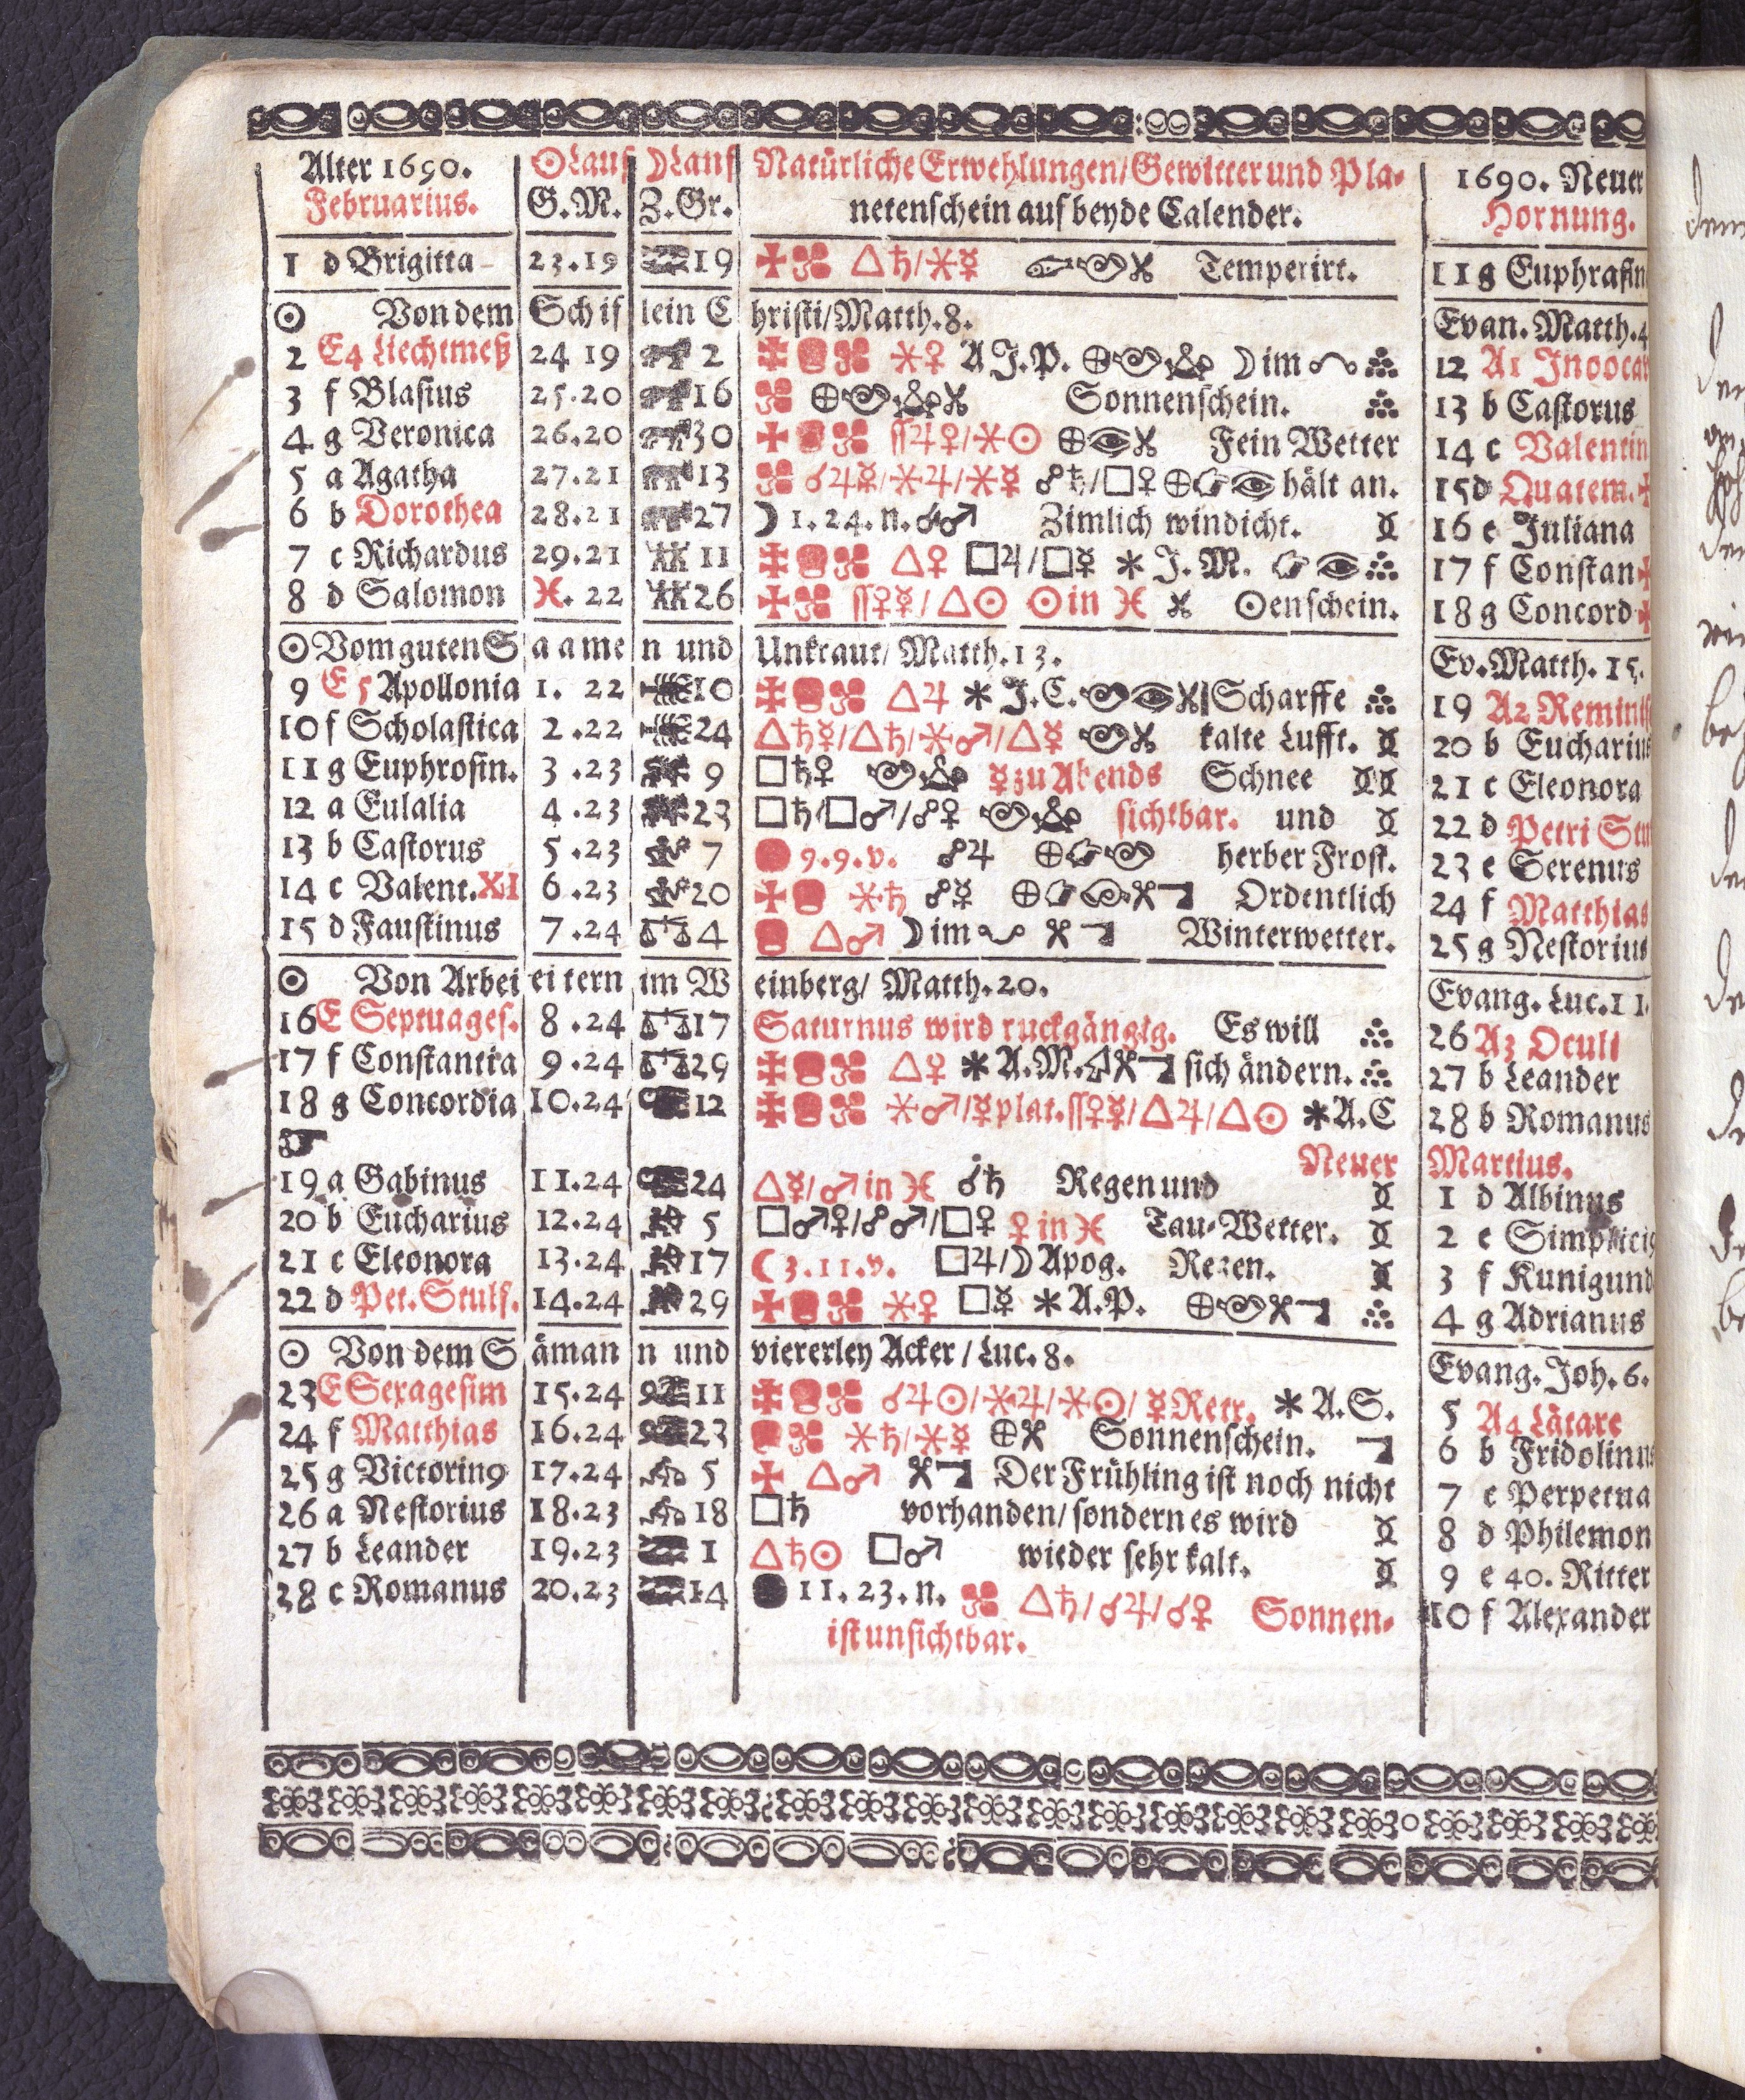 Alter 1690. ☉Lauf ☽Lauf Natürliche Erwehlungen/Gewitter und Pla- 1690. Neuer
Februarius. G.M. Z.Gr. netenschein auf beyde Calender. Hornung.
1 d Brigitta 23.19 19 △♄/⚹☿ Temperirt. 11 g Euphrasin
☉ Von dem Schif lein C hristi/Matth.8. Evan. Matth.4
2 E4 Liechtmeß 24 19 2 ⚹♀ A J.P. ⊕ ☽ im 12 A1 Jnoocar
3 f Blasius 25.20 16 ⊕ Sonnenschein. 13 b Castorus
4 g Veronica 26.20 30 ſſ♃♀/⚹☉ ⊕ Fein Wetter 14 c Valentin
5 a Agatha 27.21 13 ☌♃☿/⚹♃/⚹☿ ☍♄/□♀ ⊕ hält an. 15 d Quatem.
6 b Dorothea 28.21 27 ☽ 1.24.n. ☍♂ Zimlich windicht. 16 e Juliana
7 c Richardus 29.21 11 △♀ □♃/□☿ * J.M. 17 f Constan
8 d Salomon ♓. 22 26 ſſ♀☿/△☉ ☉in ♓ ☉enschein. 18 g Concord
☉ Vom guten S aame n und Unkraut/ Matth.13. Ev. Matth. 15.
9 E 5 Apollonia 1. 22 10 △♃ * J.C. Scharffe 19 A2 Remins
10 f Scholastica 2.22 24 △♄☿/△♄/⚹♂/△☿ kalte Lufft. 20 b Eucharius
11 g Euphrosin. 3.23 9 □♄♀ ☿zu Abends Schnee 21 c Eleonora
12 a Eulalia 4.23 23 □♄/□♂/☍♀ sichtbar. und 22 d Petri Stu
13 b Castorus 5.23 7 9.9.v. ☍♃ ⊕ herber Frost. 23 e Serenus
14 c Valent. XI 6.23 20 ⚹♄ ☍☿ ⊕ Ordentlich 24 f Matthias
15 d Faustinus 7.24 4 △♂ ☽ im Winterwetter. 25 g Nestorius
☉ Von Arbei eitern im W einberg/ Matth.20. Evang. Luc.11.
16 E Septuages. 8.24 17 Saturnus wird ruckgängig. Es will 26 A3 Oculi
17 f Constantia 9.24 29 △♀ * A.M. sich ändern. 27 b Leander
18 g Concordia 10.24 12 ⚹♂/☿plat.ſſ♀☿/△♃/△☉ * A.C 28 b Romanus
Neuer Martius.
19 a Gabinus 11.24 24 △☿/♂ in ♓ ☌♄ Regen und 1 d Albinus
20 b Eucharius 12.24 5 □♂♀/☍♂/□♀ ♀ in ♓ Tau-Wetter. 2 e Simplici9
21 c Eleonora 13.24 17 ☾ 3.11.v. □♃/☽ Apog. Regen. 3 f Kunigund
22 d Pet. Stulf. 14.24 29 ⚹♀ □☿ * A.P. ⊕ 4 g Adrianus
☉ Von dem S äman n und viererley Acker / Luc. 8. Evang. Joh. 6.
23 E Sexagesim 15.24 11 ☌♃☉/⚹♃/⚹☉/ ☿Retr. * A.S. 5 A4 Lätare
24 f Matthias 16.24 23 ⚹♄/⚹☿ ⊕ Sonnenschein. 6 b Fridolinus
25 g Victorin9 17.24 5 △♂ Der Frühling ist noch nicht 7 c Perpetua
26 a Nestorius 18.23 18 □♄ vorhanden/ sondern es wird 8 d Philemon
27 b Leander 19.23 1 △♄☉ □♂ wieder sehr kalt. 9 e 40. Ritter
28 c Romanus 20.23 14 ● 11.23.n. △♄/☌♃/☌♀ Sonnen- 10 f Alexander
ist unsichtbar.